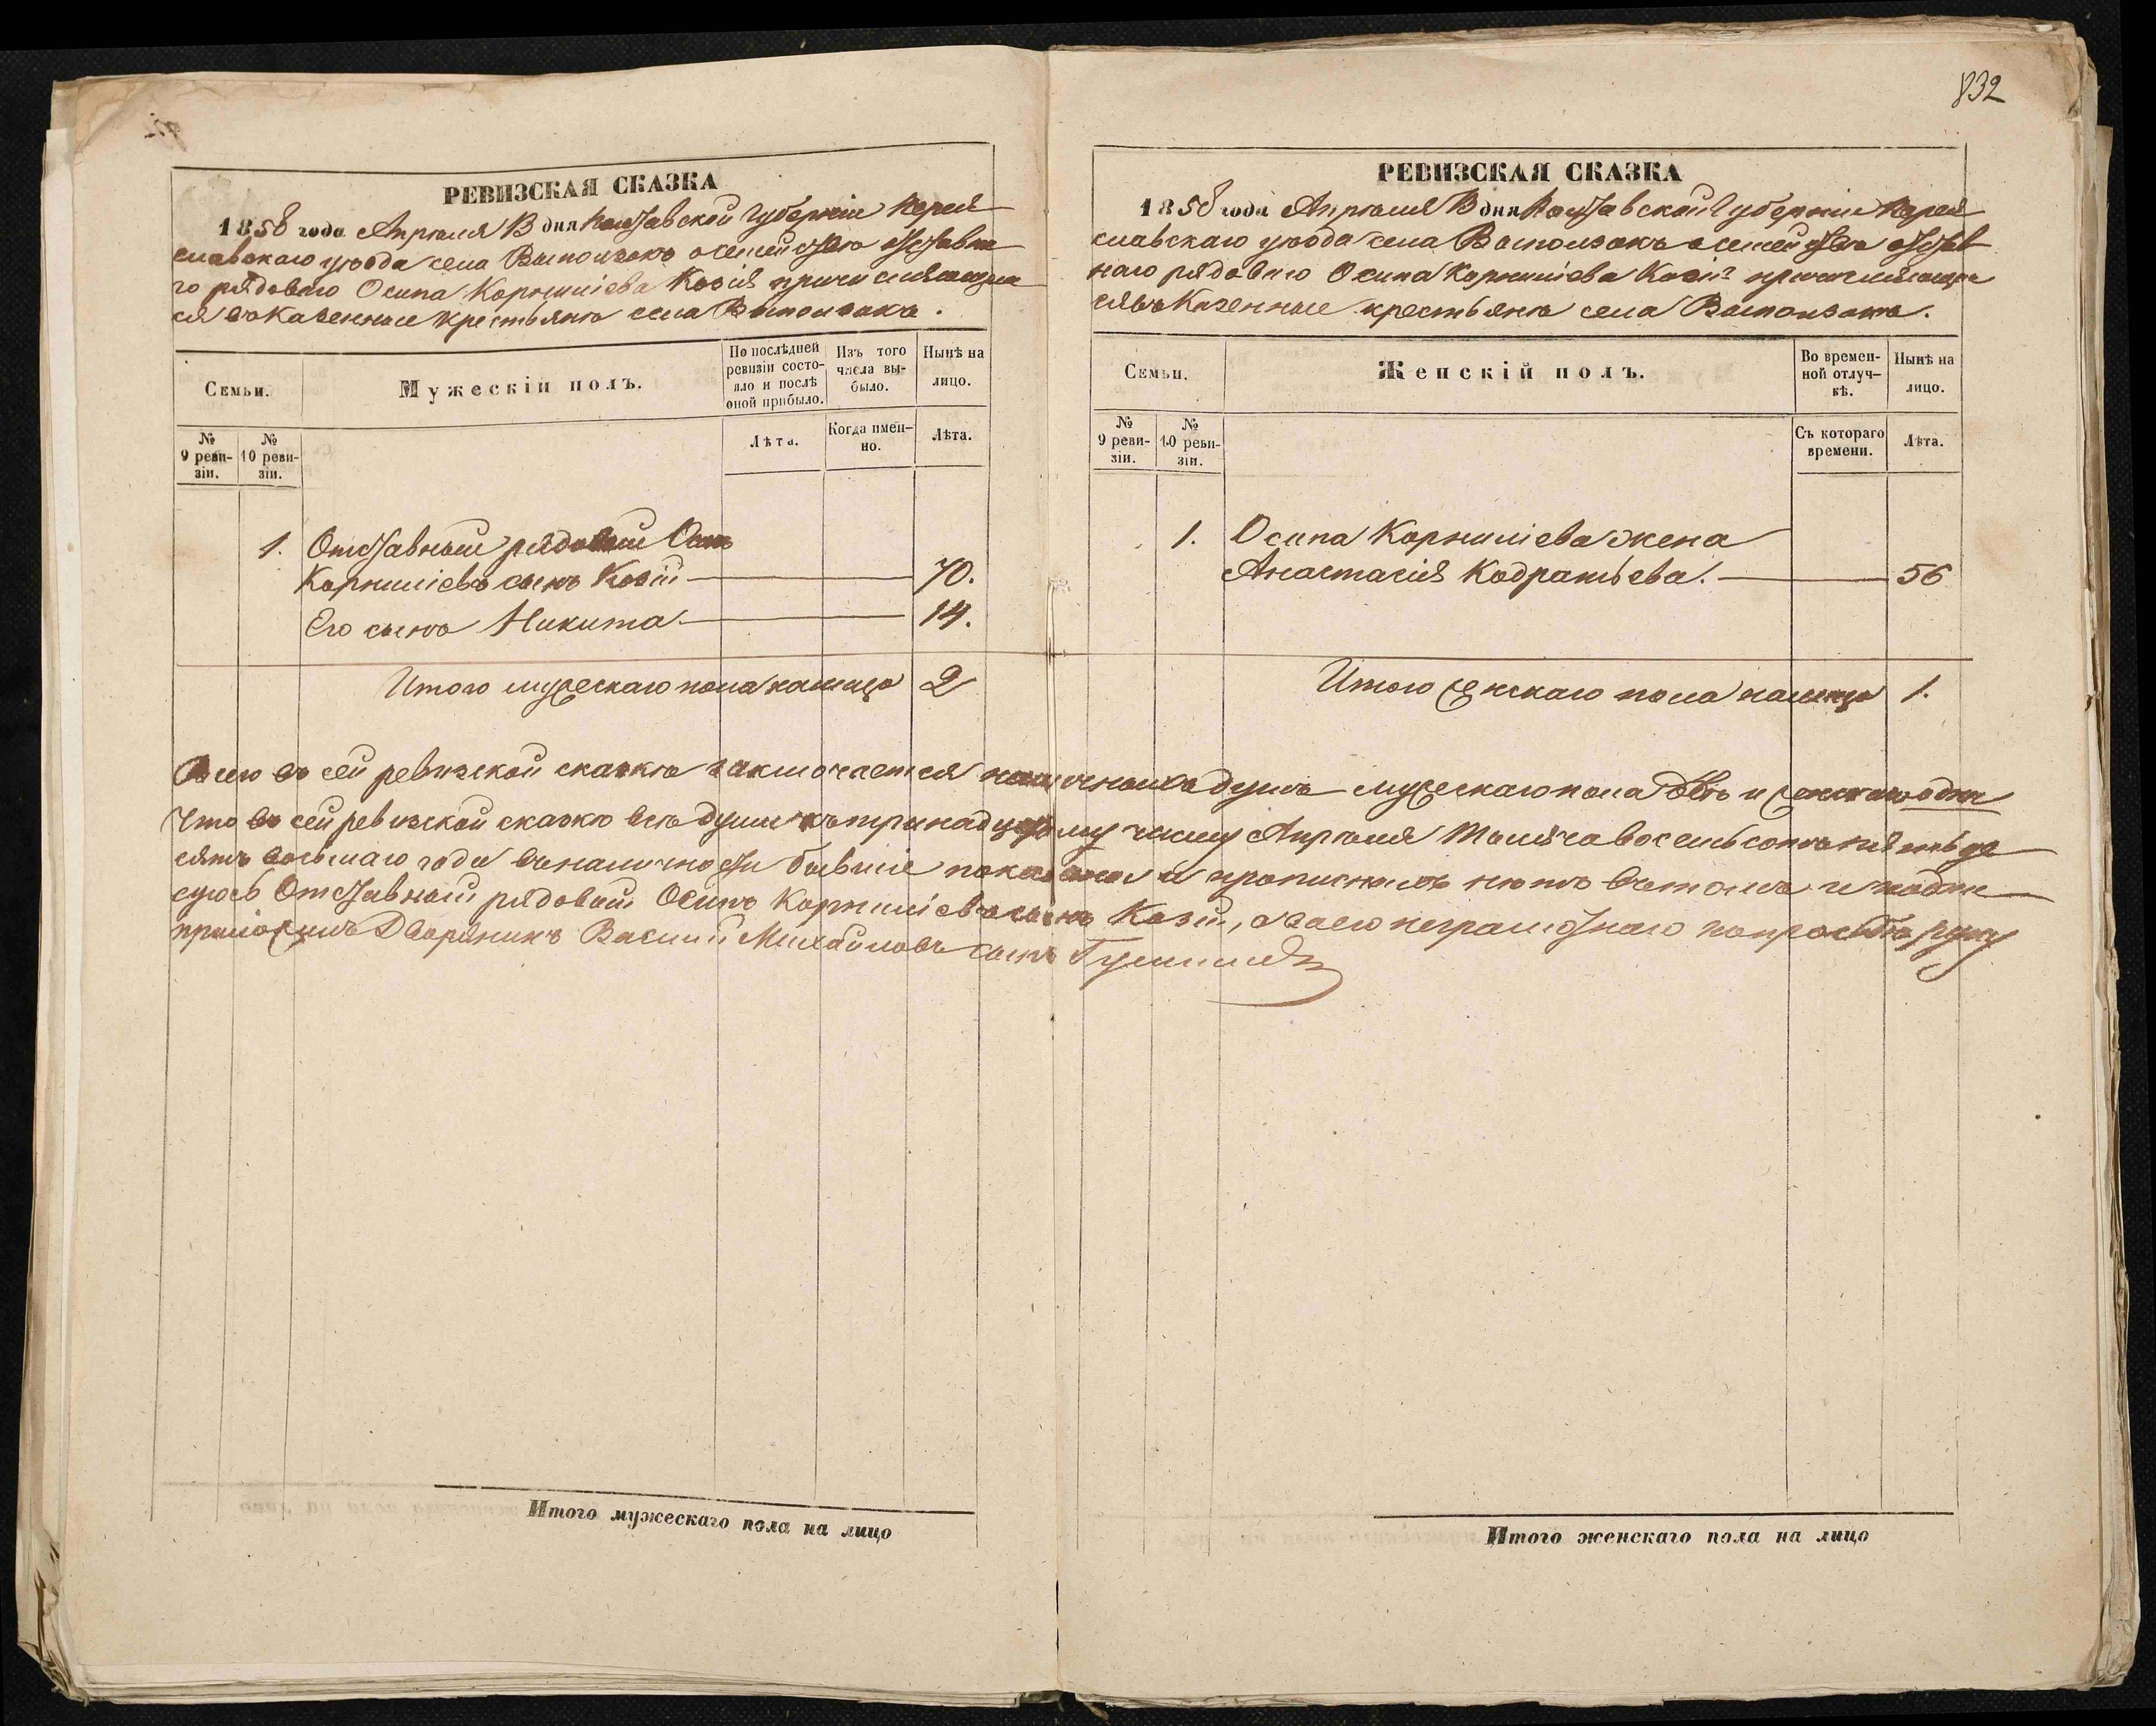 832
РЕВИЗСКАЯ СКАЗКА
1858 года Апрѣля 13 дня Полтавской Губерніи Перея
славскаго уѣзда села Выползокъ о семействѣ отставна
го рядоваго Осипа Корниліева Козія причисляющаго
ся въ Казенные крестьяне села Выползокъ.
Семьи.
Мужескій полъ.
По послѣдней ревизіи состояло и послѣ оной прибыло.
Изъ того числа выбыло.
Нынѣ на лицо.
№ 9 ревизіи.
№ 10 ревизіи.
Лѣта.
Когда именно.
Лѣта.
1. Отставный рядовый Осипъ
Корниліевъ сынъ Козій 70.
Его сынъ Никита 14.
Итого мужескаго пола налицо 2
РЕВИЗСКАЯ СКАЗКА
1858 года Апрѣля 13 дня Полтавской Губерніи Перея
славскаго уѣзда села Выползокъ о семействѣ отстав
наго рядоваго Осипа Корниліева Козія причисляющаго
ся въ Казенные крестьяне села Выползокъ.
Семьи.
Женскій полъ.
Во временной отлучкѣ.
Нынѣ на лицо.
№ 9 ревизіи.
№ 10 ревизіи.
Съ котораго времени.
Лѣта.
1. Осипа Корниліева жена
Анастасія Кодратьева. 56
Итого женскаго пола налицо 1.
Всего въ сей ревизской сказкѣ заключается наличныхъ душъ мужескаго пола двѣ и женскаго одна
Что въ сей ревизской сказкѣ всѣ души къ тринадцатому числу Апрѣля тысяча восемьсотъ пятьде
сятъ восьмаго года въ наличности бывшіе показаны и прописныхъ нѣтъ въ томъ и подпи
суюсь Отставный рядовый Осипъ Корниліевъ сынъ Козій, а за его неграмотнаго по прозбѣ руку
приложилъ Дворянинъ Василій Михайловъ сынъ
Итого мужескаго пола на лицо
Итого женскаго пола на лицо